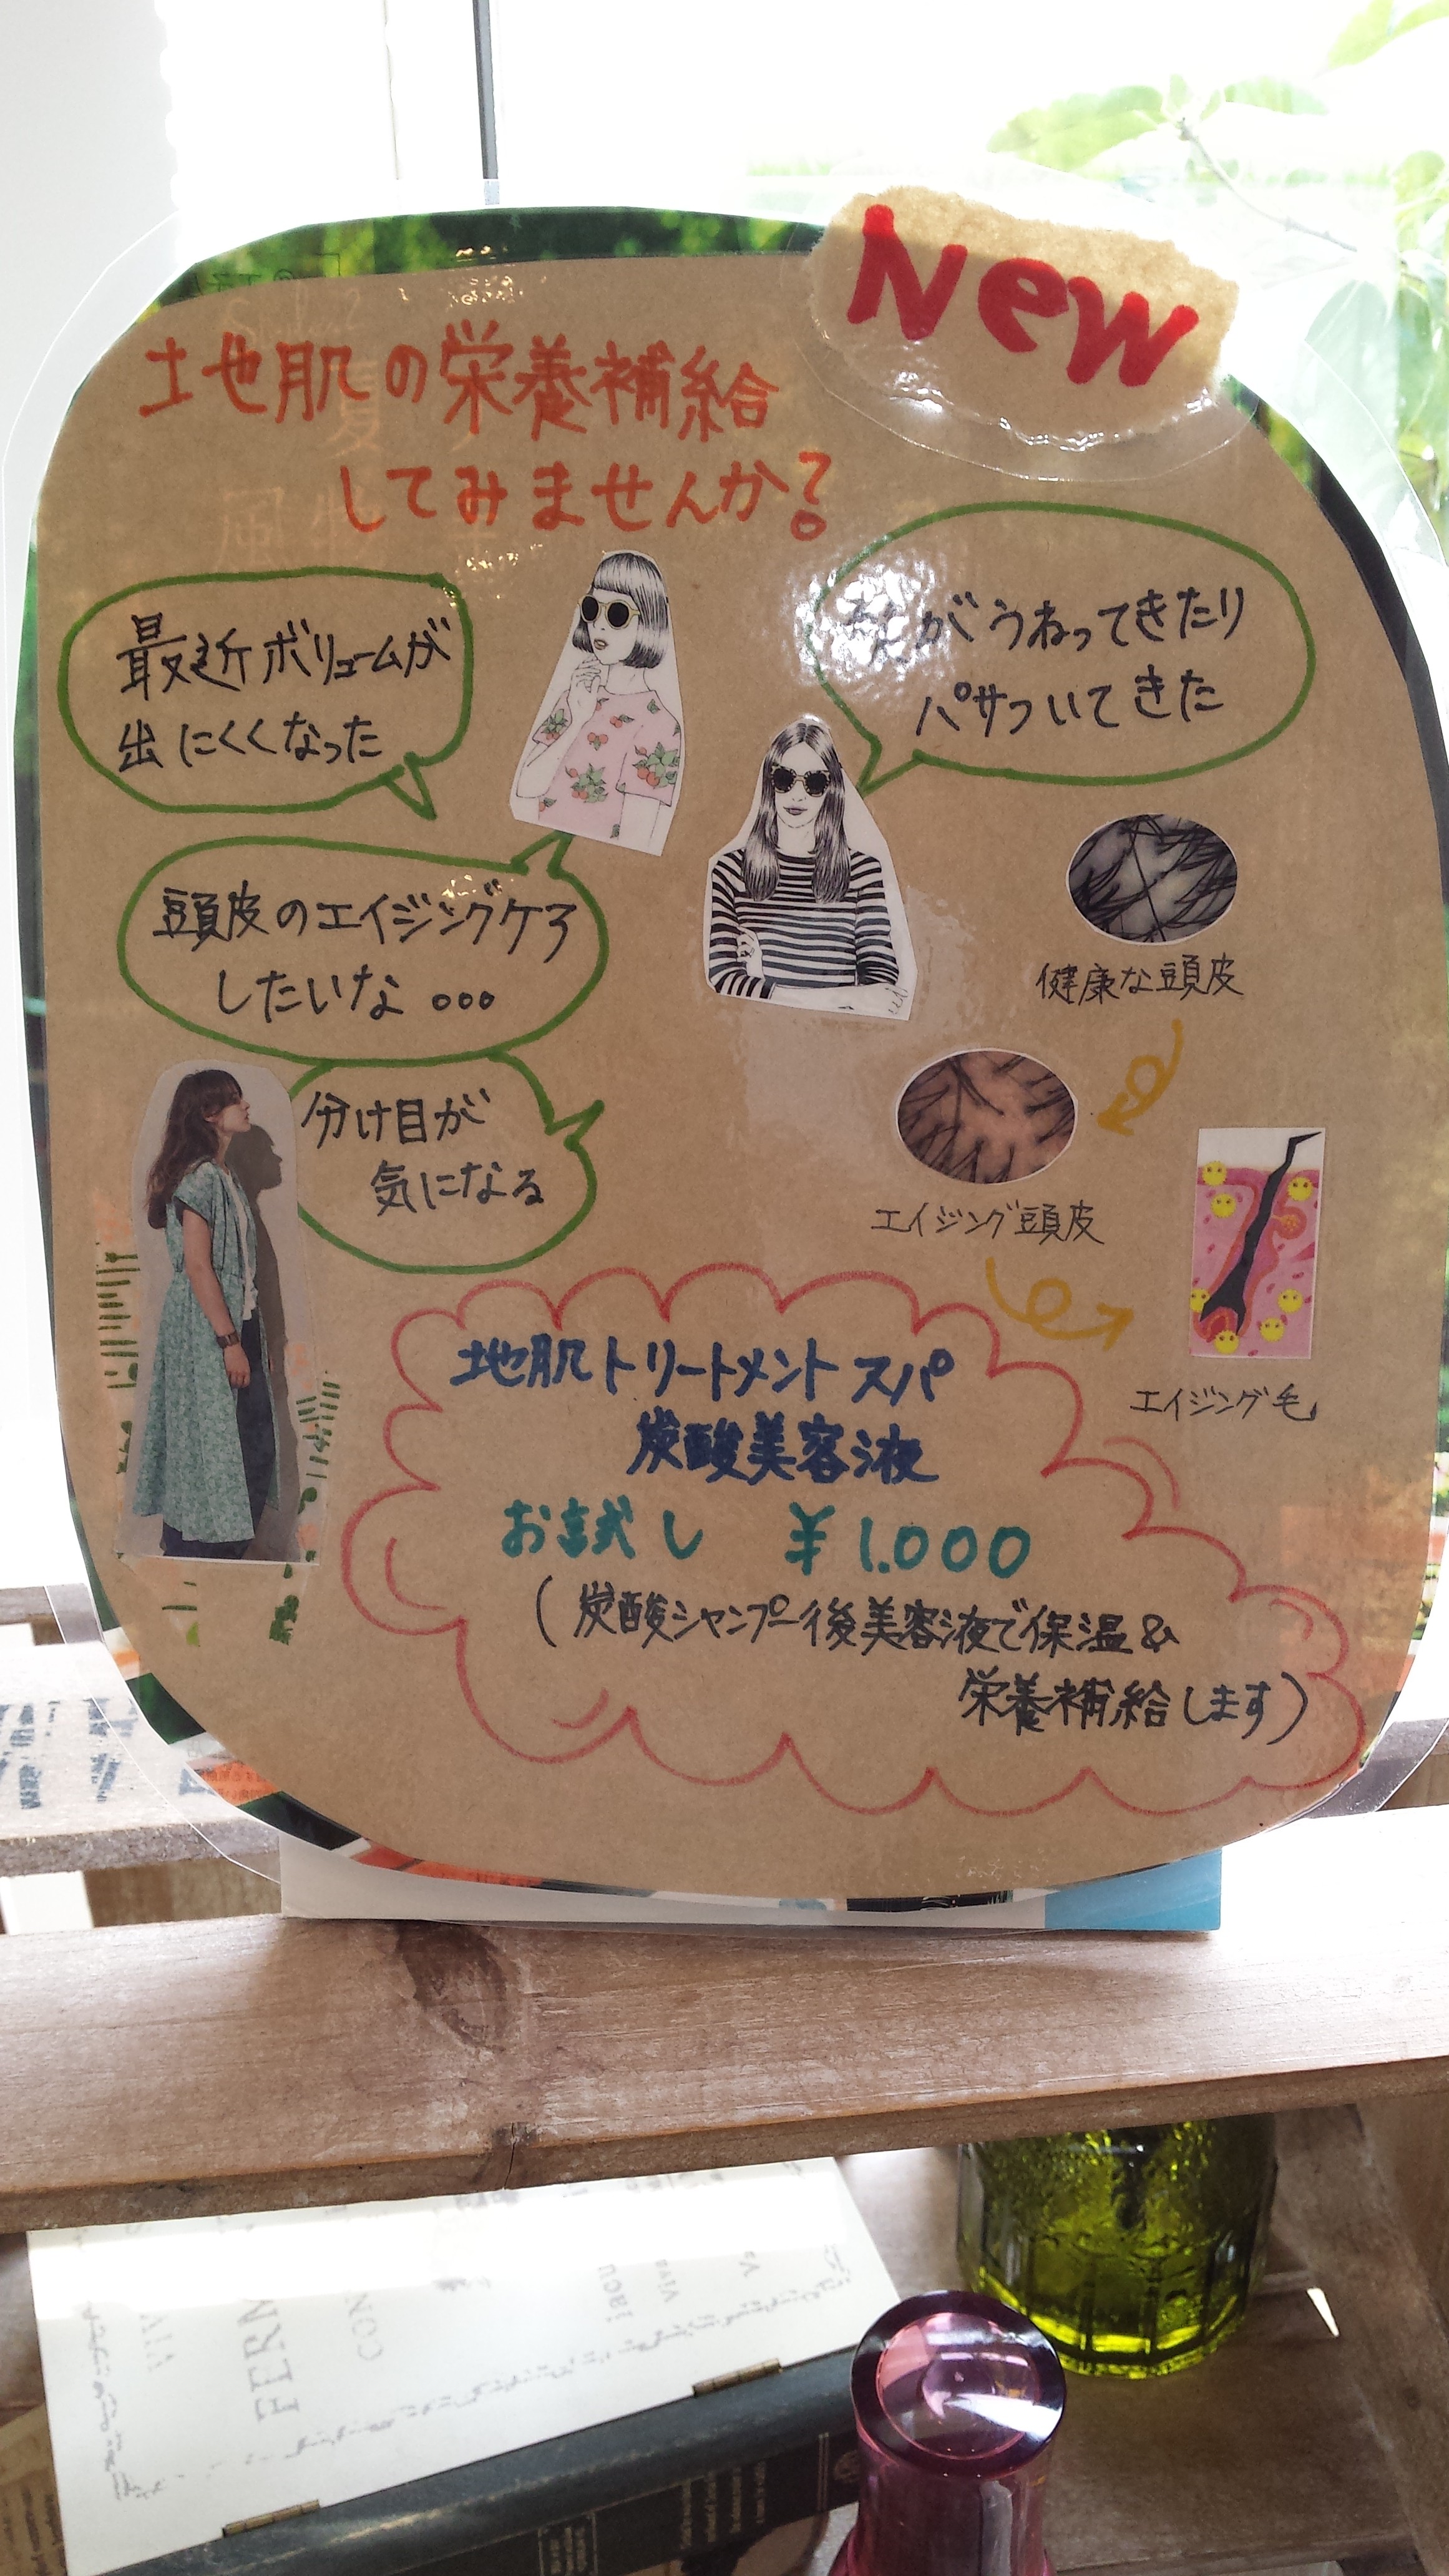 New
地肌の栄養補給
してみませんか?
最近ボリュームが
出にくくなった
がうねってきたり
パサついてきた
頭皮のエイジングケア
したいな。。。
健康な頭皮
分け目が
気になる
エイジング頭皮
エイジング毛
地肌トリートメントスパ
炭酸美容液
お試し ¥1.000
(炭酸シャンプー後美容液で保温&
栄養補給します)
FERM
CON